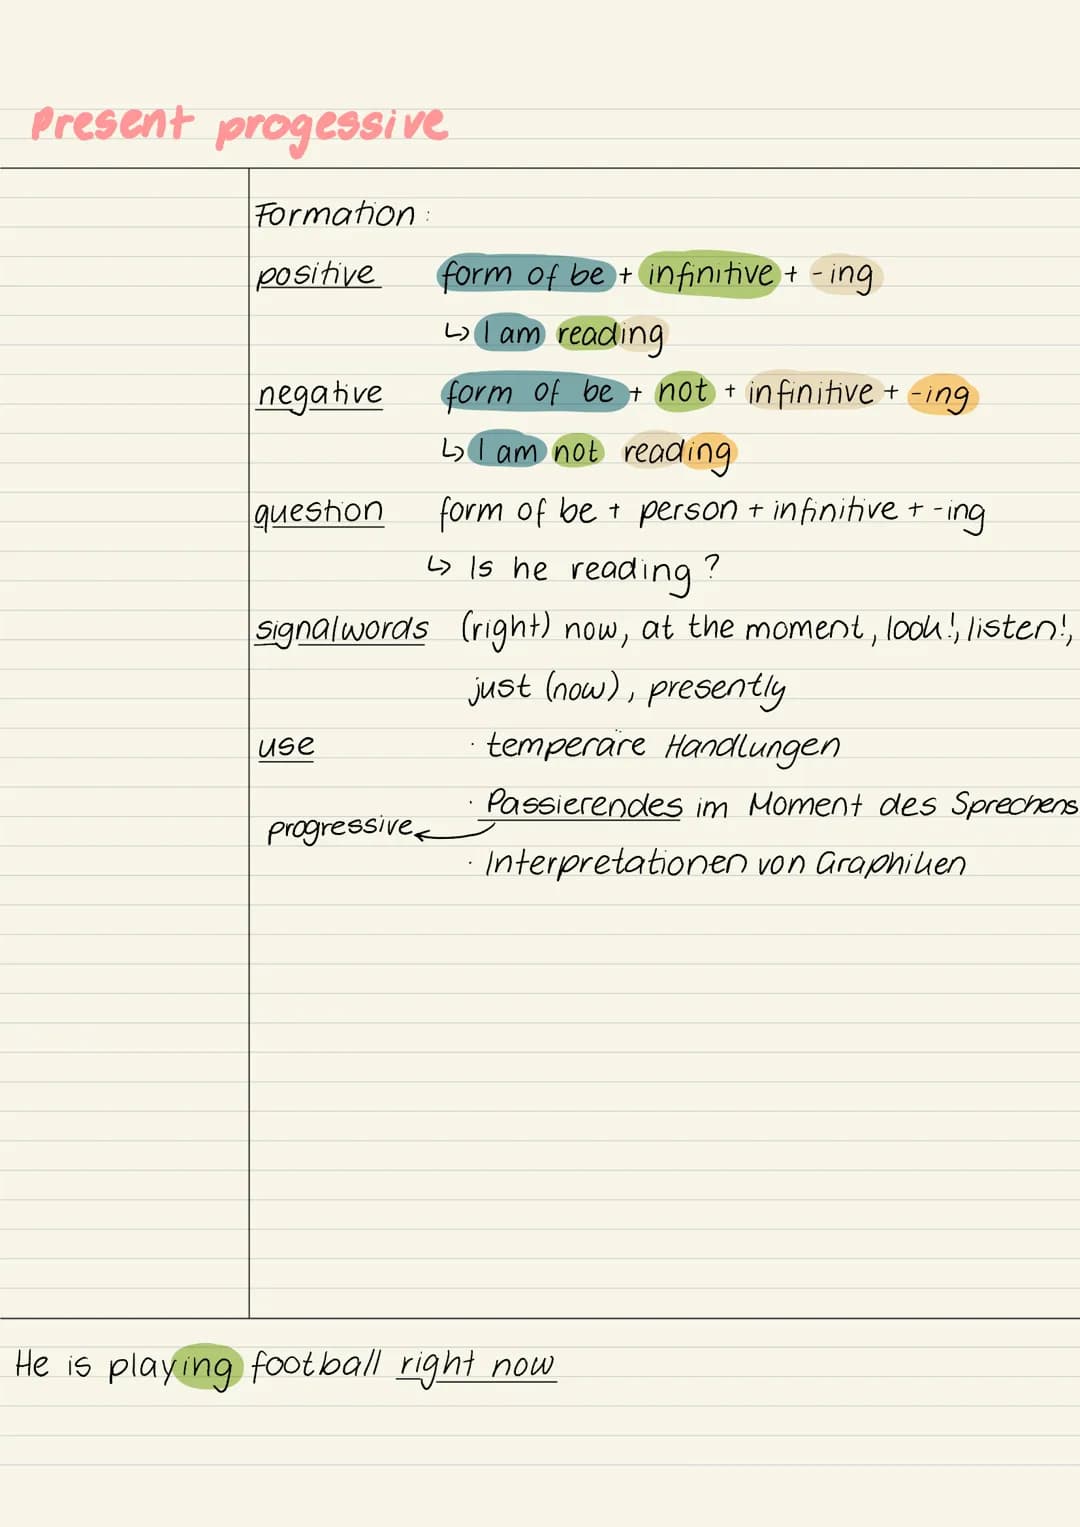 Present progessive
Formation:
positive form of be + infinitive + -ing
↳ I am reading
negative form of be + not + infinitive + -ing
↳ I am not reading
question form of be + person + infinitive + -ing
↳ Is he reading?
signalwords (right) now, at the moment, look!, listen!,
just (now), presently
use · temperäre Handlungen
· Passierendes im Moment des Sprechens
progressive
· Interpretationen von Graphiken
He is playing football right now